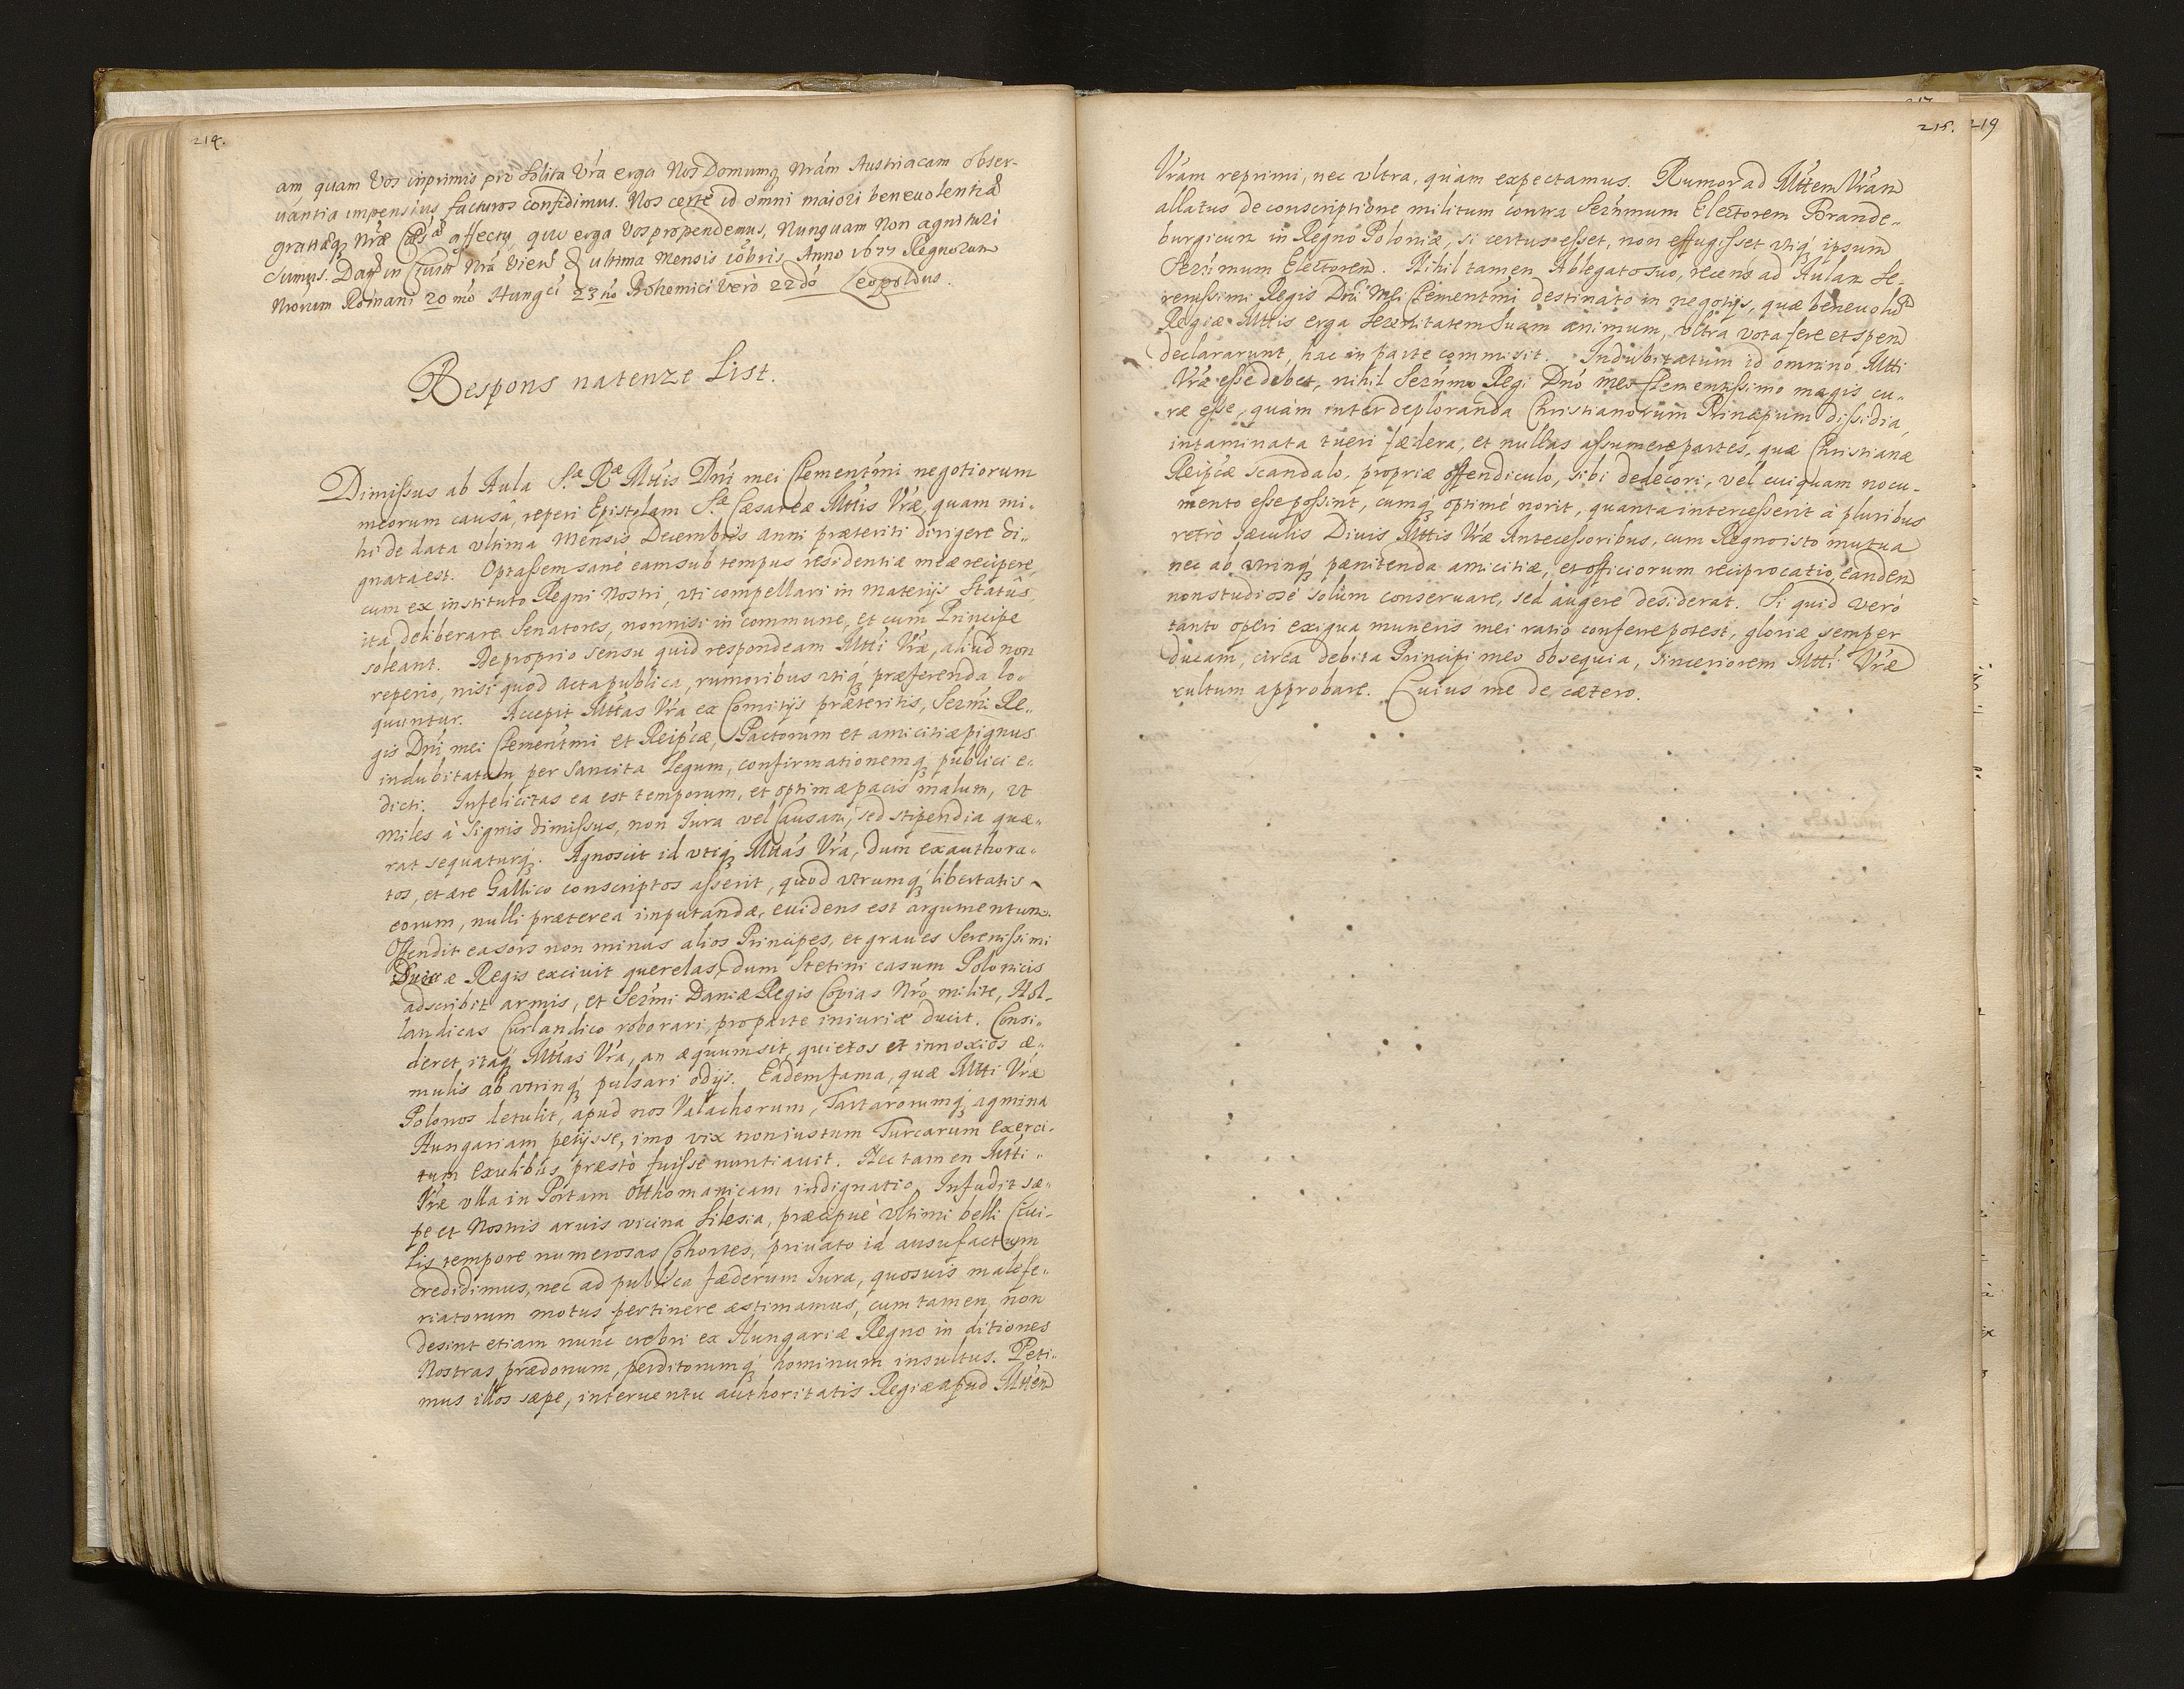 214.
am quam Vos inprimis pro solita Vrá erga Nos Domumq́ Nrám Austriacam obser-
uantia impensius facturos confidimus. Nos certé id omni maiori beneuolentia
gratiaq́ Nrǽ Cæsᵃ affectu, quo erga Vos propendemus, Nunquam non agnituri
sumus. Dat in Ciuitt Nrá Vien ultima Mensis 10bris Anno 1677 Regnorum
Nrórum Romani 20 mó Hungci 23 tió Bohemici veró 22dó Leopoldus.
Respons na tenze List.
Dimissus ab Aula S.æ Rᵃᵉ Mttis Dni mei Clementmi negotiorum
meorum causâ, reperi Epistolam S.æ Cæsareæ Mttis Vræ, quam mi-
hi de data vltima Mensis Decembris anni præteriti dirigere di-
gnata est. Optassem sané eam sub tempus residentiæ meæ recipere,
cum ex instituto Regni Nostri, vti compellari in materijs Statûs,
ita deliberare Senatores, non nisi in commune, et cum Principe
soleant. De proprio sensu quid respondeam Mtti Vræ, aliud non
reperio, nisi quod acta publica, rumoribus vtiq́ præferenda lo-
quuntur. Accepit Mttas Vra ex Comitijs præteritis, Sermi Re-
gis Dni mei Clementmi et Reipcæ, Pactorum et amicitiæ pignus
indubitatum per sancita legum, confirmationemq́ publici e-
dicti. Infelicitas ea est temporum, et optimæ pacis malum, vt
miles à signis dimissus, non Iura vel Causam, sed stipendia quæ-
rat sequaturq́. Agnoscit id vtiq́ Mttas Vra, dum exauthora-
tos, et ære Gallico conscriptos asserit, quod vtrumq́ libertatis
eorum, nulli præterea imputandæ, euidens est argumentum.
Offendit ea sors non minus alios Principes, et graues Serenissimi
Regis exciuit querelas, dum Stetini casum Polonicis
adscribit armis, et Sermi Daniæ Regis Copias Nró milite, Hol-
landicas Curlandico roborari, pro parte iniuriæ ducit. Consi-
deret itaq́ Mttas Vra, an æquum sit, quietos et innoxios æ-
mulis ab vtrinq́ pulsari odijs. Eadem fama, quæ Mtti Vræ
Polonos detulit, apud nos Valachorum, Tartarorumq́ agmina
Hungariam petijsse, imo vix non iustum Turcarum exerci-
tum exulibus præstò fuisse nuntiauit. Nec tamen Mtti
Vræ vlla in Portam Otthomanicam indignatio. Infudit sæ-
pe et Nostris aruis vicina Silesia, præcipuè vltimi belli Ciui-
lis tempore numerosas Cohortes, priuato id ausu factum
credidimus, nec ad publica fæderum Iura, quosuis malefe-
riatorum motus pertinere æstimamus, cum tamen non
desint etiam nunc crebri ex Hungariæ Regno in ditiones
Nostras prædonum, perditorumq́ hominum insultus. Peti-
mus illos sæpe, interuentu authoritatis Regiæ apud Mttem
215. 219
Vram reprimi, nec vltra, quàm expectamus. Rumor ad Mttem Vram
allatus de conscriptione militum contra Sernmum Electorem Brande-
burgicum in Regno Poloniæ, si certus esset, non effugisset vtiq́ ipsum
Sernmum Electorem. Nihil tamen Ablegato suo, recens ad Aulam Se-
renissimi Regis Dni Mei Clementmi destinato in negotijs, quæ beneuolum
Regiæ Mttis erga Serenitatem Suam animum, vltra vota fere et spem
declararunt, hac in parte commisit. Indubitatum id omnino Mtti
Vræ esse debet, nihil Sernmo Regi Dnó meo Clementissimo magis cu-
ræ esse, quàm inter deploranda Christianorum Principum dissidia,
intaminata tueri fædera, et nullas assumere partes, quæ Christianæ
Reipcæ scandalo, propriæ offendiculo, sibi dedecori, vel cuiquam nocu-
mento esse possint, cumq́ optimé norit, quanta intercesserit à pluribus
retrò sæculis Diuis Mttis Vræ Antecessoribus, cum Regno isto mutua
nec ab vtrinq́ pænitenda amicitiæ, et officiorum reciprocatio, eandem
non studiosé solùm conseruare, sed augere desiderat. Si quid veró
tanto operi exigua muneris mei ratio conferre potest, gloriæ semper
ducam, circa debita Principi meo obsequia, sinceriorem Mtti Vræ
cultum approbare. Cuius me de cætero.